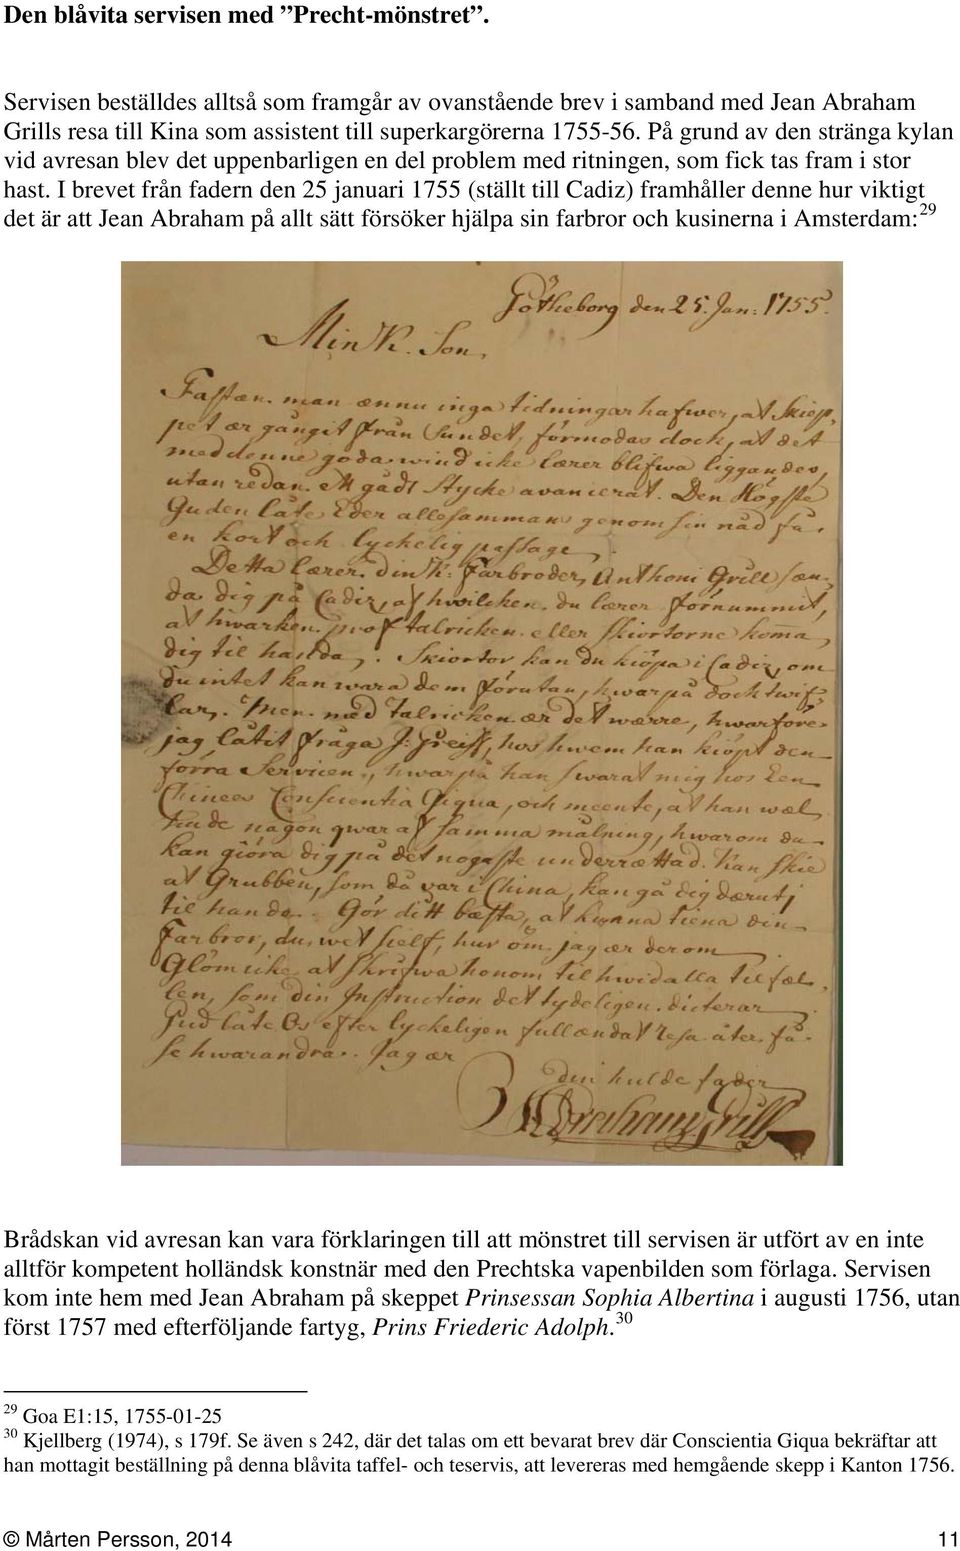 Den blåvita servisen med ”Precht-mönstret”.
Servisen beställdes alltså som framgår av ovanstående brev i samband med Jean Abraham
Grills resa till Kina som assistent till superkargörerna 1755-56. På grund av den stränga kylan
vid avresan blev det uppenbarligen en del problem med ritningen, som fick tas fram i stor
hast. I brevet från fadern den 25 januari 1755 (ställt till Cadiz) framhåller denne hur viktigt
det är att Jean Abraham på allt sätt försöker hjälpa sin farbror och kusinerna i Amsterdam:29
Götheborg den 25. Jan: 1755.
Min K. Son,
Fastæn man ænnu inga tidningar hafwer, at Skiep-
pet ær gångit från Sundet, förmodas dock, at det
med denne goda wind icke lærer blifwa liggandes,
utan redan ett gådt stycke avancerat. Den Högste
Guden låte Eder allesammans genom sin nåd få
en kort och lyckelig passage.
Detta lærer din K: Farbroder, Anthoni Grill sæn-
da dig på Cadix, af hwilcken du lærer förnummit,
at hwarken talricken eller skiortorne koma
dig til handa. Skiortor kan du kiöpa i Cadix, om
du intet kan wara dem förutan, hwarpå dock twif-
lar. Men med talricken ær det wærre, hwarföre
jag låtit fråga J: Preiss, hos hwem han kiöpt den
förra Servicen, hwarpå han swarat mig hos Een
Chinees Conscientia Giqua, och meente, at han wæl
nagon qwar af samma målning, hwarom du
kan giöra dig på det nogaste underrættad. Kan skie
at Grubben, som då var i China, kan gå dig dærutj
til handa. Gör ditt bæsta, at kunna tiena din
Farbror, du wet sielf, hur öm jag ær derom.
Glöm icke at skrifwa honom til hwid alla tilfæl-
len, som din Instruction det tydeligen dicterar
Gud låte Os efter lyckeligen fullændat resa åter få
se hwarandra. Jag ær
Din hulde fader
Abraham Grill
Brådskan vid avresan kan vara förklaringen till att mönstret till servisen är utfört av en inte
alltför kompetent holländsk konstnär med den Prechtska vapenbilden som förlaga. Servisen
kom inte hem med Jean Abraham på skeppet Prinsessan Sophia Albertina i augusti 1756, utan
först 1757 med efterföljande fartyg, Prins Friederic Adolph.30
29 Goa E1:15, 1755-01-25
30 Kjellberg (1974), s 179f. Se även s 242, där det talas om ett bevarat brev där Conscientia Giqua bekräftar att
han mottagit beställning på denna blåvita taffel- och teservis, att levereras med hemgående skepp i Kanton 1756.
© Mårten Persson, 2014 11